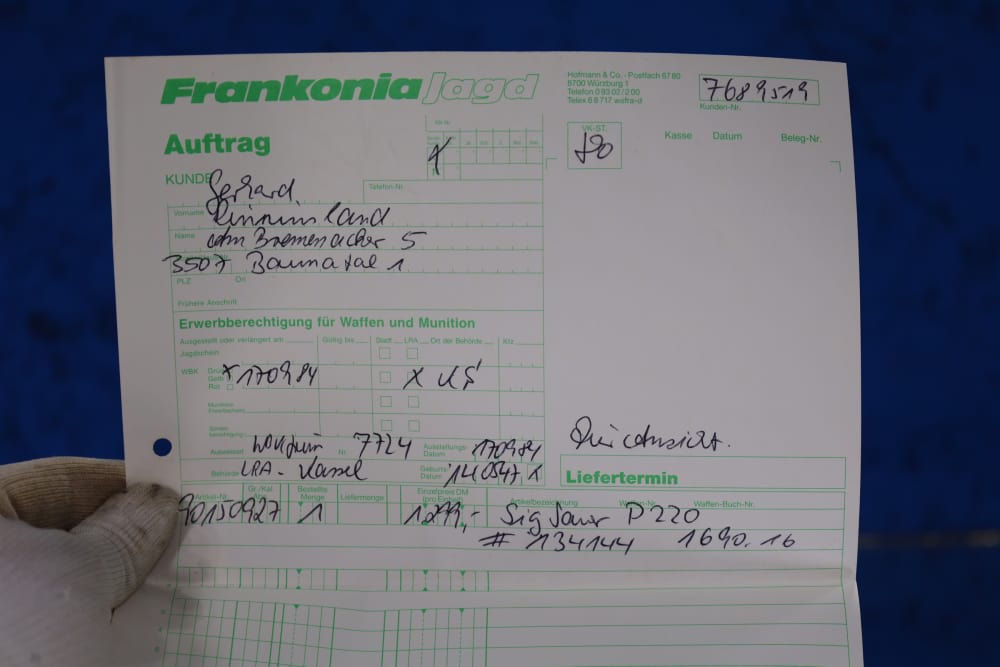 Frankonia Jagd
Hofmann & Co. - Postfach 67 80
8700 Würzburg 1
Telefon 0 93 02 / 2 00
Telex 6 8 717 wafra-d
7689519
Kunden-Nr.
Auftrag
VK-ST.
Kasse Datum Beleg-Nr.
KUNDE
Gerhard
Telefon-Nr.
Vorname
Name
5
3507 Baunatal 1
PLZ Ort
Frühere Anschrift
Erwerbberechtigung für Waffen und Munition
Ausgestellt oder verlängert am Gültig bis Stadt LRA Ort der Behörde Kfz
Jagdschein
WBK Grün
Gelb X 170984 X KS
Rot
Munitions-
Erwerbschein
Sonder-
berechtigung
Ausweisart Nr. 7724 Ausstellungs-
Datum 170984
Behörde LRA - Kassel Geburts-
Datum 140547
Liefertermin
Artikel-Nr. Gr./Kal. Bestellte
Menge Liefermenge Einzelpreis DM
(pro Einheit) Artikelbezeichnung Waffen-Nr. Waffen-Buch-Nr.
90150927 1 1299,- Sig Sauer P220
# 134144 1690.16